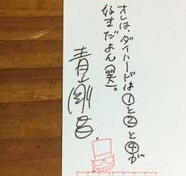 オレは、ダイハードは①と②と④が
好きだよん(笑)。
青山剛昌